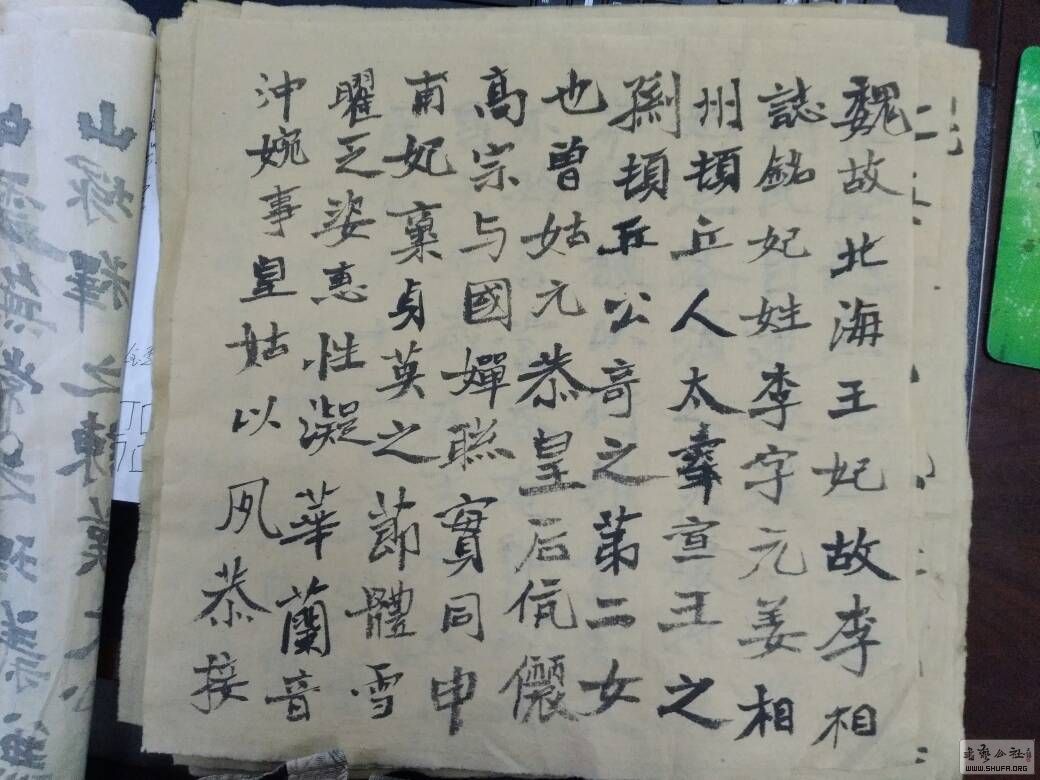 魏故北海王妃故李相
誌銘妃姓李字元姜相
州頓丘人太宰宣王之
孫頓丘公奇之第二女
也曾姑元恭皇后伉儷
高宗与國嬋聯實同申
甫妃稟貞英之節體雪
曜之姿惠性凝華蘭音
沖婉事皇姑以夙恭接
書藝公社
WWW.SHUFA.ORG